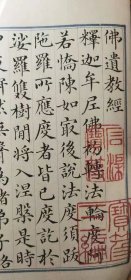 佛遺教經
釋迦牟尼佛初轉法輪度阿
若憍陳如最後說法度須跋
陀羅所應度者皆已度訖於
娑羅雙樹間將入涅槃是時
中夜寂然無聲為諸弟子略